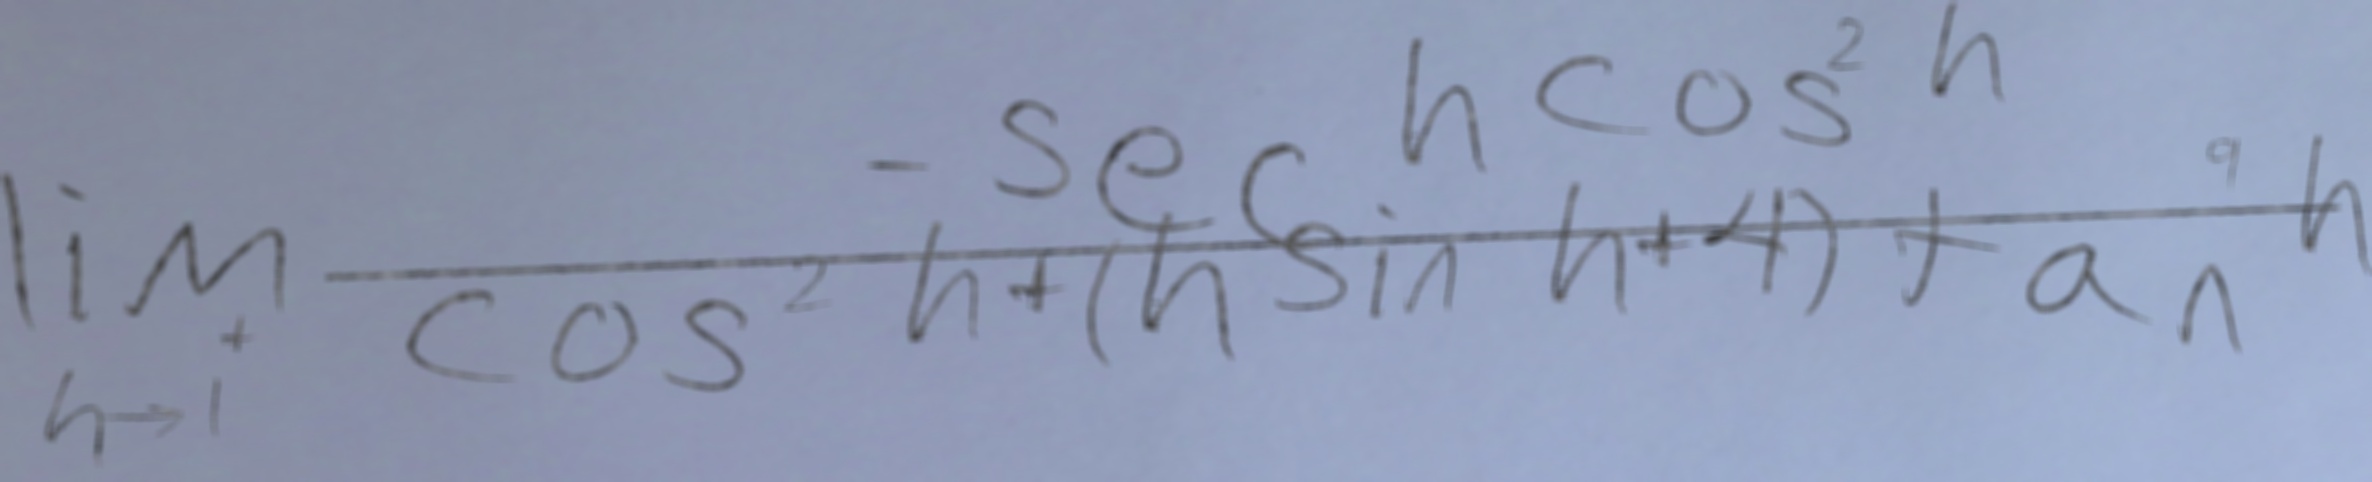 \lim_{h \to 1^+} \frac{-\sec h \cos^2 h}{\cos^2 h + (h \sin h + 4) \tan^9 h}